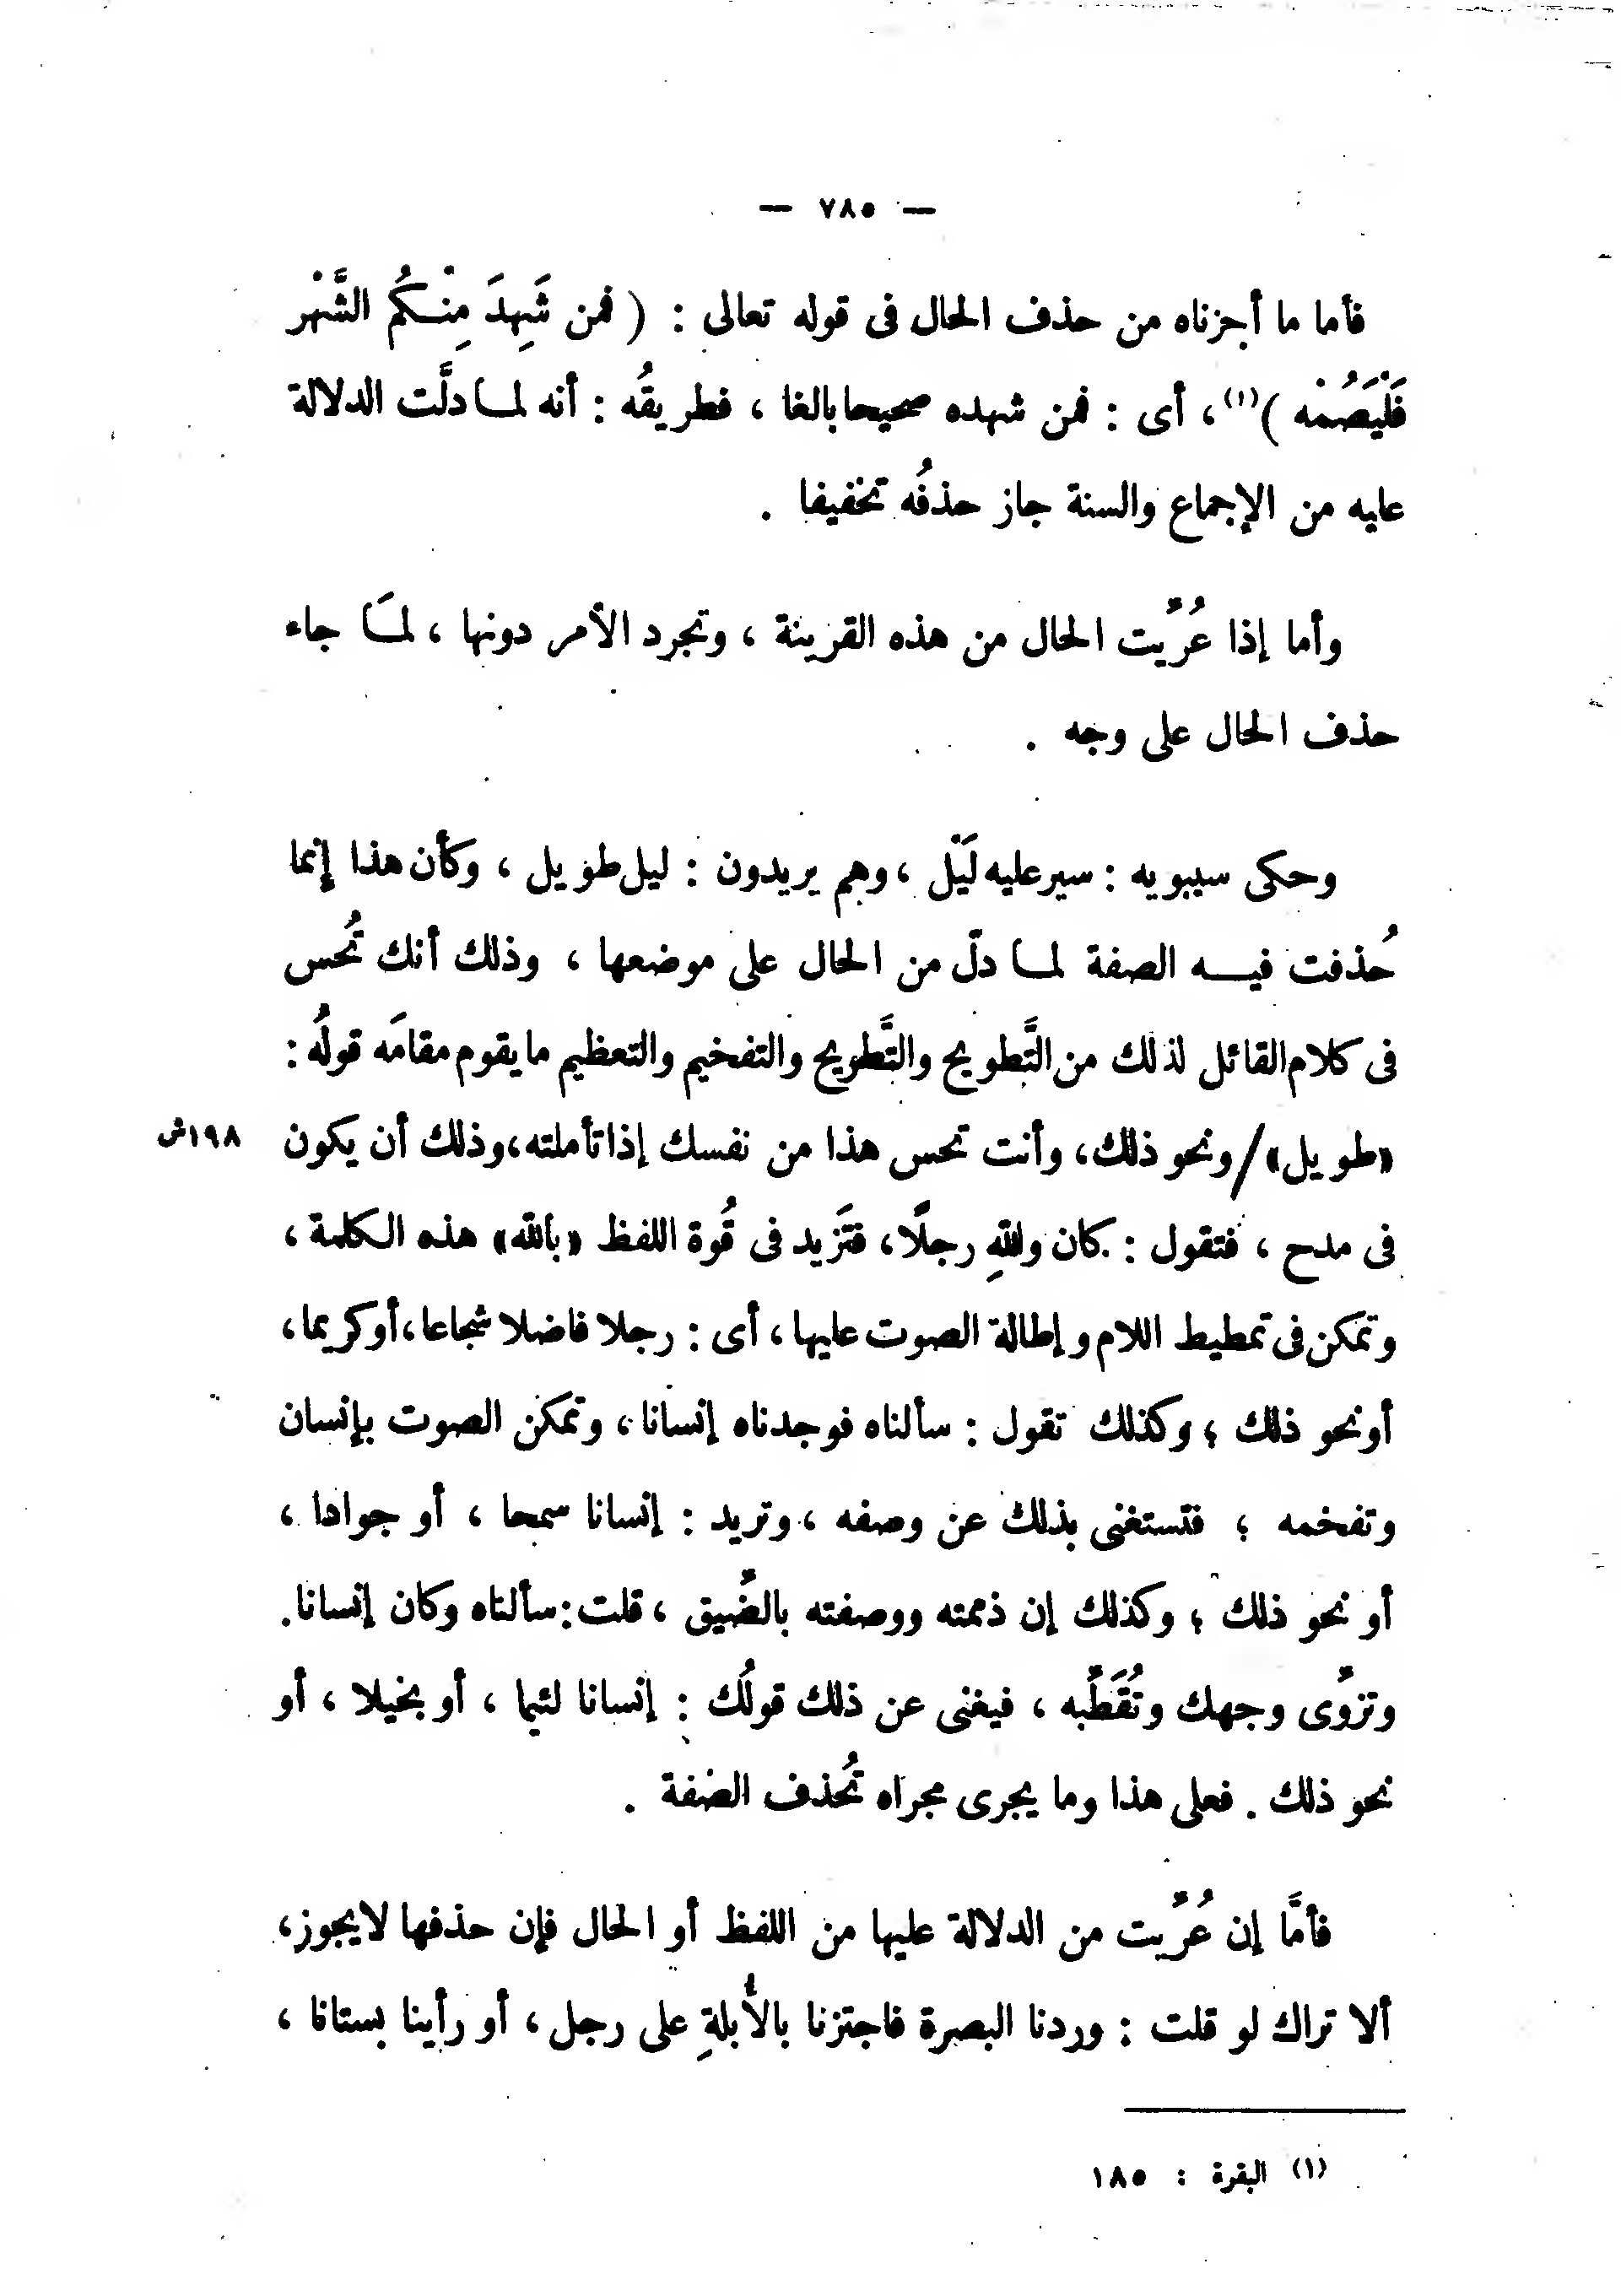 — ٧٨٥ —
فأما ما أجزناه من حذف الحال فى قوله تعالى : ( فمن شَهِدَ مِنْكُم الشَّهْر
فَلْيَصُمْه )(١)، أى : فمن شهده صحيحا بالغا ، فطريقُه : أنه لما دلَّت الدلالة
عليه من الإجماع والسنة جاز حذفُه تخفيفا .
وأما إذا عُرِّيت الحال من هذه القرينة ، وتجرد الأمر دونها ، لمَا جاء
حذف الحال على وجه .
وحكى سيبويه : سير عليه لَيْل ، وهم يريدون : ليل طويل ، وكأن هذا إنما
حُذفت فيه الصفة لما دلّ من الحال على موضعها ، وذلك أنك تُحس
فى كلام القائل لذلك من التَّطويح والتَّطريح والتفخيم والتعظيم ما يقوم مقامَه قولُه :
«طويل»/ونحو ذلك، وأنت تحس هذا من نفسك إذا تأملته، وذلك أن يكون ١٩٨ش
فى مدح ، فتقول : كان واللهِ رجلًا، فتَزيد فى قُوة اللفظ «بالله» هذه الكلمة ،
وتمكن فى تمطيط اللام وإطالة الصوت عليها ، أى : رجلا فاضلا شجاعا، أو كريما،
أو نحو ذلك ؛ وكذلك تقول : سألناه فوجدناه إنسانا ، وتمكن الصوت بإنسان
وتفخمه ؛ فتستغنى بذلك عن وصفه ، وتريد : إنسانا سمحا ، أو جوادا ،
أو نحو ذلك ؛ وكذلك إن ذممته ووصفته بالضِّيق ، قلت: سألناه وكان إنسانا.
وتزوِّى وجهك وتُقَطِّبه ، فيغنى عن ذلك قولُك : إنسانا لئيما ، أو بخيلا ، أو
نحو ذلك . فعلى هذا وما يجرى مجراه تُحذف الصفة .
فأمَّا إن عُرِّيت من الدلالة عليها من اللفظ أو الحال فإن حذفها لا يجوز،
ألا تراك لو قلت : وردنا البصرة فاجتزنا بالأُبلةِ على رجل ، أو رأينا بستانا ،
(١) البقرة : ١٨٥